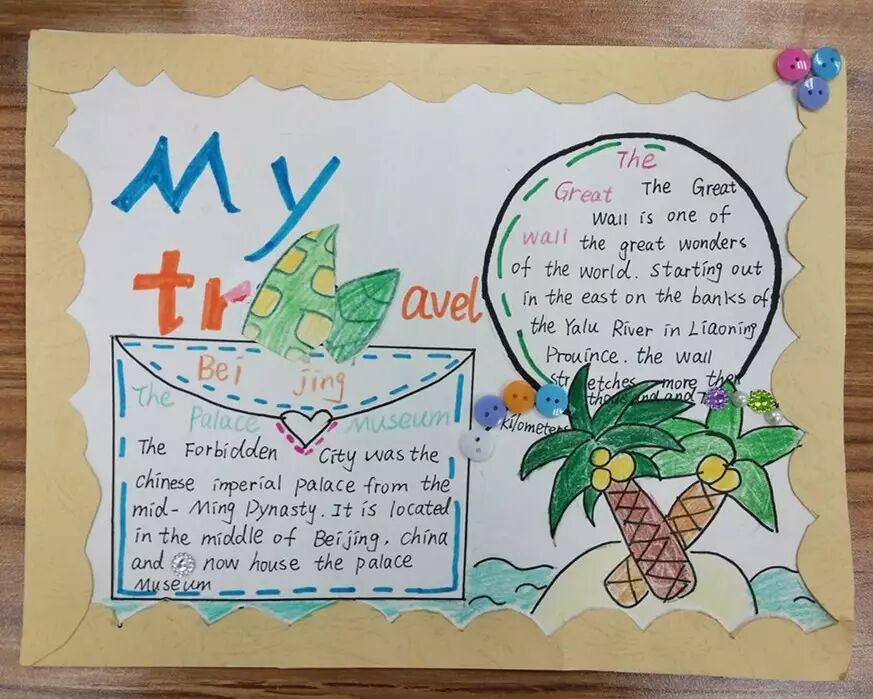 My
travel
Bei jing
The Palace Museum
The Forbidden City was the
chinese imperial palace from the
mid-Ming Dynasty. It is located
in the middle of Beijing. china
and now house the palace
Museum
The
Great
wall
The Great
wall is one of
the great wonders
of the world. Starting out
in the east on the banks of
the Yalu River in Liaoning
Prouince. the wall
stretches more than
kilometers